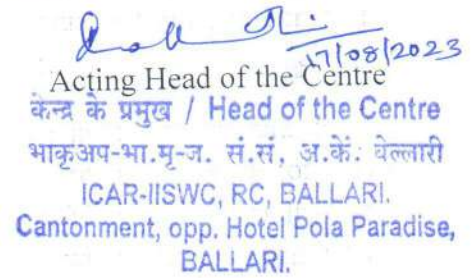 17/08/2023
Acting Head of the Centre
केन्द्र के प्रमुख / Head of the Centre
भाकृअप-भा.मृ-ज. सं.सं, अ.कें. वेल्लारी
ICAR-IISWC, RC, BALLARI.
Cantonment, opp. Hotel Pola Paradise,
BALLARI.